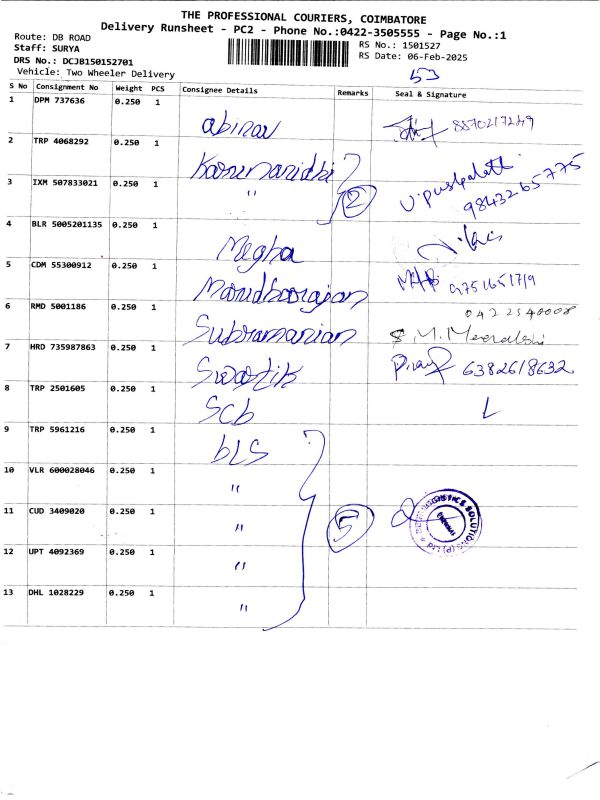 THE PROFESSIONAL COURIERS, COIMBATORE
Delivery Runsheet - PC2 - Phone No.:0422-3505555 - Page No.:1
Route: DB ROAD
Staff: SURYA
RS No.: 1501527
DRS No.: DCJB150152701
RS Date: 06-Feb-2025
Vehicle: Two Wheeler Delivery
153
S No Consignment No Weight PCS Consignee Details Remarks Seal & Signature
1 DPM 737636 0.250 1 abinav 8870217249
2 TRP 4068292 0.250 1 Karunanidhi
3 IXM 507833021 0.250 1 " 2 V. Puspalatha 9843265775
4 BLR 5005201135 0.250 1 Megha
5 CDM 55300912 0.250 1 Marudhoorajan 9751651719
6 RMD 5001186 0.250 1 Subramanian 0422540008
S. M. Meenakshi
7 HRD 735987863 0.250 1 Swastik 6382618632
8 TRP 2501605 0.250 1 Scb
9 TRP 5961216 0.250 1 bLS
10 VLR 600028046 0.250 1 "
11 CUD 3409020 0.250 1 " 5 LOGISTICS SOLUTIONS (P) Ltd
12 UPT 4092369 0.250 1 "
13 DHL 1028229 0.250 1 "